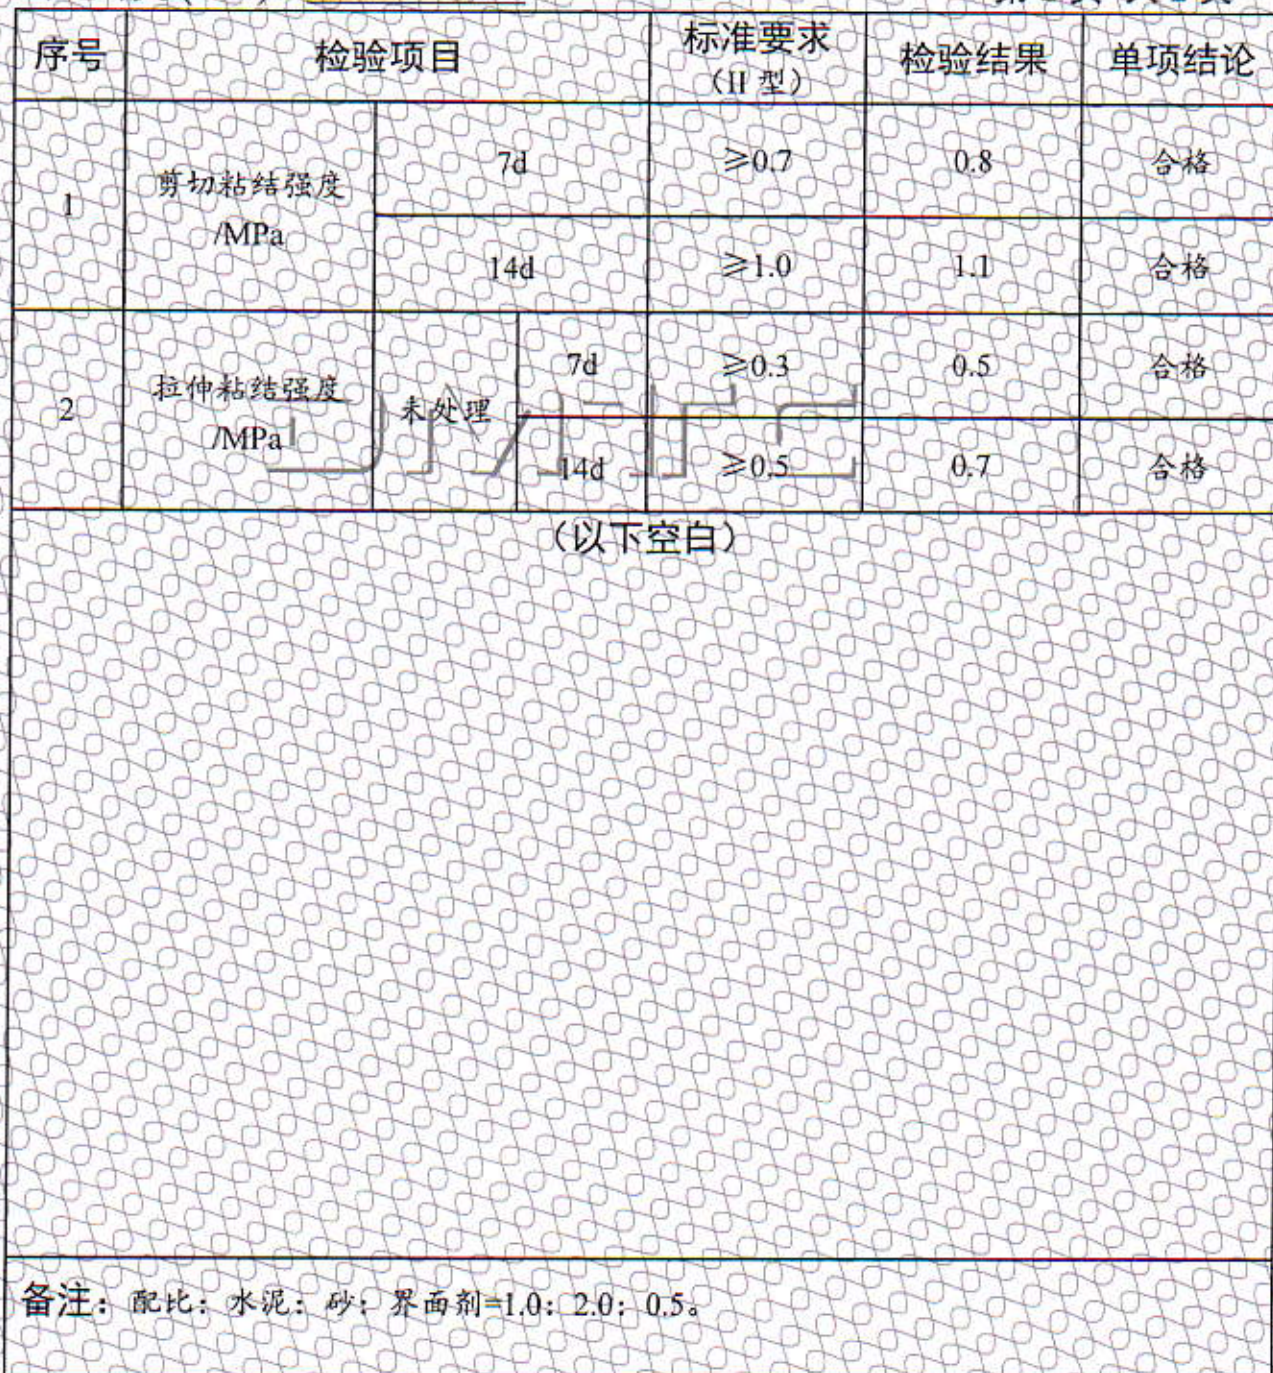 序号 检验项目 标准要求 检验结果 单项结论
（II 型）
1 剪切粘结强度 7d ≥0.7 0.8 合格
/MPa 14d ≥1.0 1.1 合格
2 拉伸粘结强度 未处理 7d ≥0.3 0.5 合格
/MPa 14d ≥0.5 0.7 合格
（以下空白）
备注：配比：水泥：砂：界面剂=1.0：2.0：0.5。